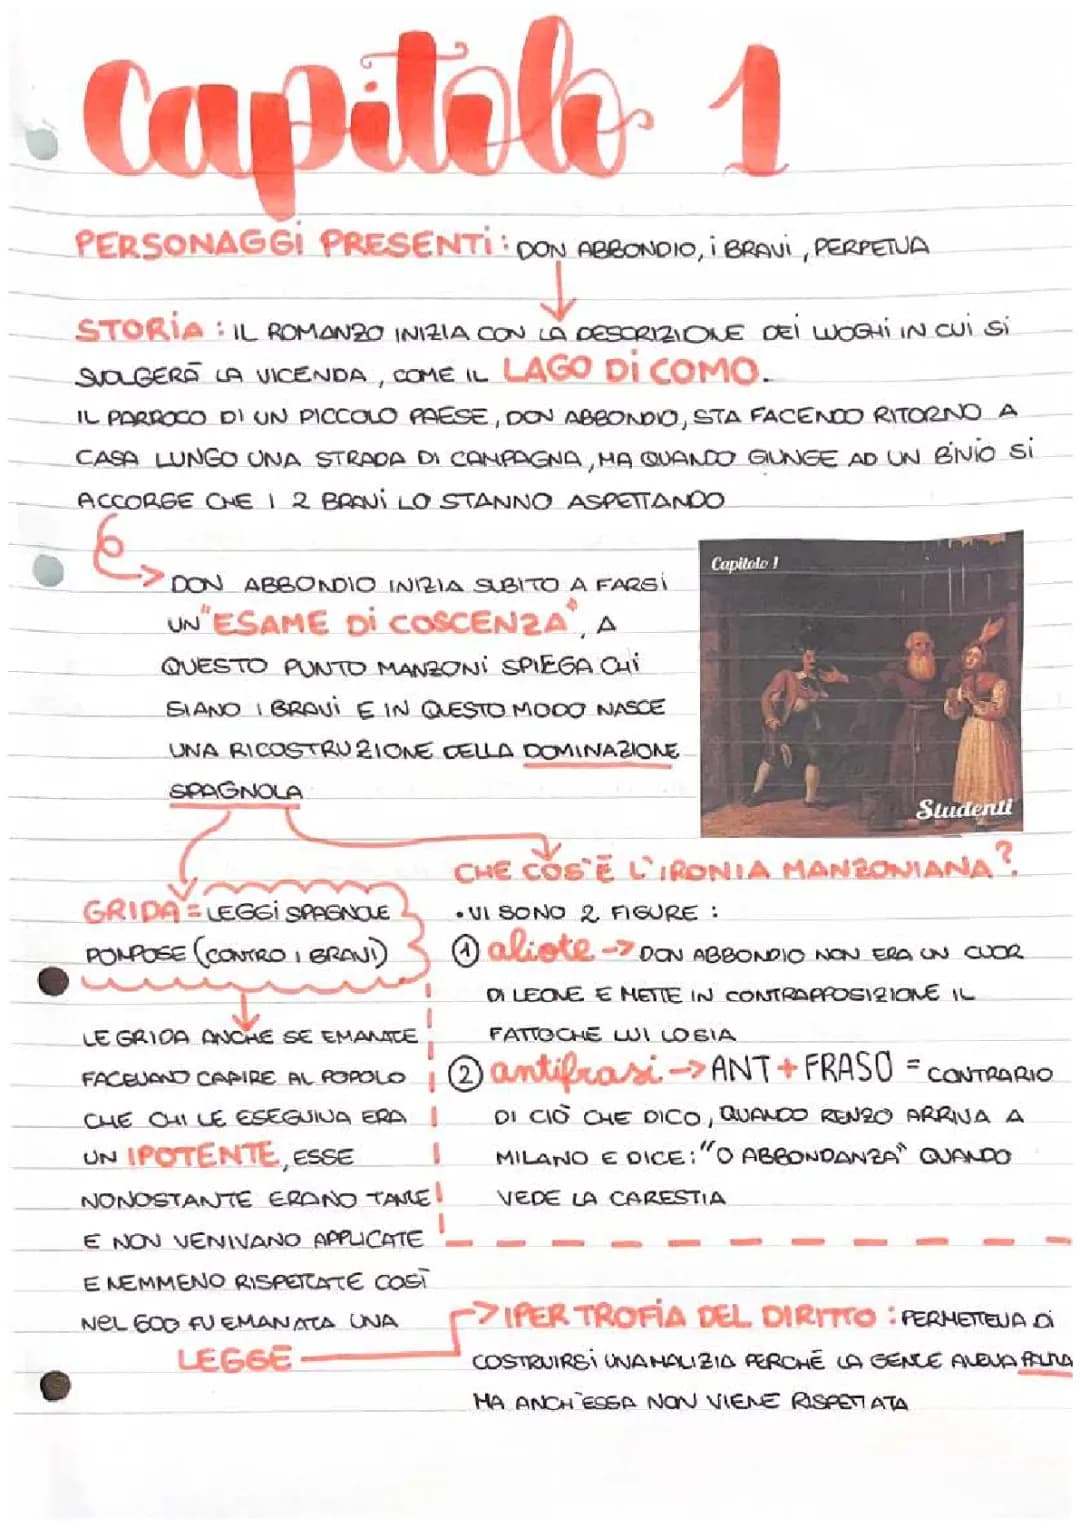 Capitolo 1
PERSONAGGI PRESENTI: DON ABBONDIO, i BRAVI, PERPETUA
STORIA: IL ROMANZO INIZIA CON LA DESCRIZIONE DEI LUOGHI IN CUI SI
SVOLGERÀ LA VICENDA, COME IL LAGO DI COMO.
IL PARROCO DI UN PICCOLO PAESE, DON ABBONDIO, STA FACENDO RITORNO A
CASA LUNGO UNA STRADA DI CAMPAGNA, MA QUANDO GIUNGE AD UN BIVIO SI
ACCORGE CHE I 2 BRAVI LO STANNO ASPETTANDO
DON ABBONDIO INIZIA SUBITO A FARSI
UN "ESAME DI COSCENZA", A
QUESTO PUNTO MANZONI SPIEGA CHI
SIANO I BRAVI E IN QUESTO MODO NASCE
UNA RICOSTRUZIONE DELLA DOMINAZIONE
SPAGNOLA
Capitolo 1
Studenti
GRIDA = LEGGI SPAGNOLE
POMPOSE (CONTRO I BRAVI)
LE GRIDA ANCHE SE EMANATE
FACEVANO CAPIRE AL POPOLO
CHE CHI LE ESEGUIVA ERA
UN IPOTENTE, ESSE
NONOSTANTE ERANO TANTE
E NON VENIVANO APPLICATE
E NEMMENO RISPETTATE COSÌ
NEL 600 FU EMANATA UNA
LEGGE
CHE COS'È L'IRONIA MANZONIANA?
• VI SONO 2 FIGURE:
1 aliote -> DON ABBONDIO NON ERA UN CUOR
DI LEONE E METTE IN CONTRAPPOSIZIONE IL
FATTO CHE LUI LO SIA
2 antifrasi -> ANT + FRASO = CONTRARIO
DI CIÒ CHE DICO, QUANDO RENZO ARRIVA A
MILANO E DICE: "O ABBONDANZA" QUANDO
VEDE LA CARESTIA
IPER TROFIA DEL DIRITTO: PERMETTEVA DI
COSTRUIRSI UNA MALIZIA PERCHÉ LA GENTE AVEVA PAURA
MA ANCH'ESSA NON VIENE RISPETTATA